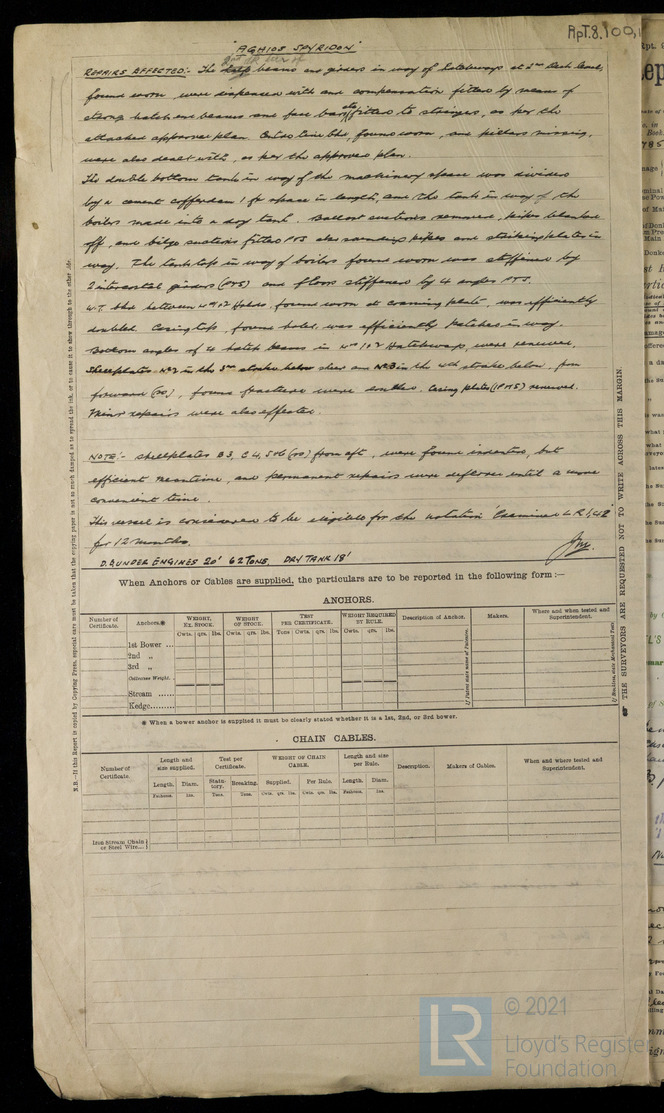 "AGHIOS SPYRIDON"
Rpt.8.100,1
REPAIRS AFFECTED:- The beams and girders in way of hatchways at 2nd deck level,
found worn were dispensed with and compensation fitted by means of
strong hatch end beams and face bars fitted to stringer, as per the
attached approved plan. Centre line bhd, found worn, and pillars missing,
were also dealt with, as per the approved plan.
The double bottom tank in way of the machinery space was divided
by a cement cofferdam 1 fr. space in length, and the tank in way of the
boilers made into a dry tank. Ballast suctions removed, pipes blanked
off, and bilge suctions fitted P&S also sounding pipes and striking plates in
way. The tank top in way of boilers found worn was stiffened by
2 intercostal girders (P&S) and floors stiffened by 4 angles P&S.
W.T. bhd between Nos 1 & 2 Holds, found worn at coaming plate, was efficiently
doubled. Casing top, found holed, was efficiently patched in way.
Bottom angles of 4 hatch beams in Nos 1 & 2 Hatchways, were renewed.
Shellplates No2 in the 3rd strake below sheer and No3 in the 4th strake below, from
forward (PS), found fractured were doubled. Casing plates (1P & 1S) renewed.
Minor repairs were also effected.
NOTE:- Shellplates B3, C4, 5 & 6 (PS) from aft, were found indented, but
efficient meantime, and permanent repairs were deferred until a more
convenient time.
This vessel is considered to be eligible for the notation "Examined L.R. 1,48"
for 12 months.
D.B UNDER ENGINES 20' 62 TONS, DRY TANK 18'
When Anchors or Cables are supplied, the particulars are to be reported in the following form:—
ANCHORS.
Number of Certificate. Anchors.* WEIGHT, EX. STOCK. WEIGHT OF STOCK. TEST PER CERTIFICATE. WEIGHT REQUIRED BY RULE. Description of Anchor. Makers. Where and when tested and Superintendent.
Cwts. qrs. lbs. Cwts. qrs. lbs. Tons Cwt. qrs. lbs. Cwts. qrs. lbs.
1st Bower ...
2nd „
3rd „
Collective Weight.
Stream ......
Kedge.........
If Patent state name of Patentee.
* When a bower anchor is supplied it must be clearly stated whether it is a 1st, 2nd, or 3rd bower.
CHAIN CABLES.
Number of Certificate. Length and size supplied. Test per Certificate. WEIGHT OF CHAIN CABLE. Length and size per Rule. Description. Makers of Cables. When and where tested and Superintendent.
Length. Diam. Statutory. Breaking. Supplied. Per Rule. Length. Diam.
Fathoms. Ins. Tons. Tons. Cwts. qrs. lbs. Cwts. qrs. lbs. Fathoms. Ins.
Iron Stream Chain or Steel Wire...
N.B.—If this Report is copied by Copying Press, especial care must be taken that the copying paper is not so much damped as to spread the ink, or to cause it to show through to the other side.
THE SURVEYORS ARE REQUESTED NOT TO WRITE ACROSS THIS MARGIN.
LR
© 2021
Lloyd's Register
Foundation